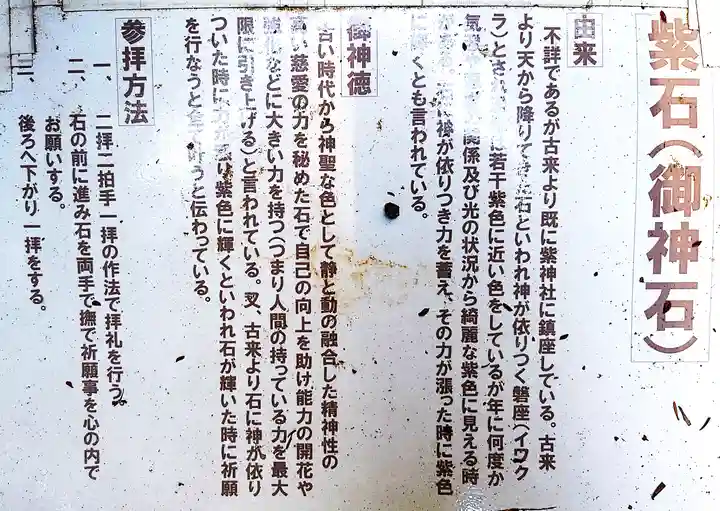 紫石(御神石)
由来
不詳であるが古来より既に紫神社に鎮座している。古来
より天から降りてきた石といわれ神が依りつく磐座(イワク
ラ)とされ 若干紫色に近い色をしているが年に何度か
気 関係及び光の状況から綺麗な紫色に見える時
が 神が依りつき力を蓄え、その力が漲った時に紫色
に くとも言われている。
御神徳
古い時代から神聖な色として静と動の融合した精神性の
高い慈愛の力を秘めた石で自己の向上を助け能力の開花や
強化などに大きい力を持つ(つまり人間の持っている力を最大
限に引き上げる)と言われている。又、古来より石に神が依り
ついた時に力が 紫色に輝くといわれ石が輝いた時に祈願
を行なうと 叶うと伝わっている。
参拝方法
一、二拝二拍手一拝の作法で拝礼を行う。
二、石の前に進み石を両手で撫で祈願事を心の内で
お願いする。
三、後ろへ下がり一拝をする。